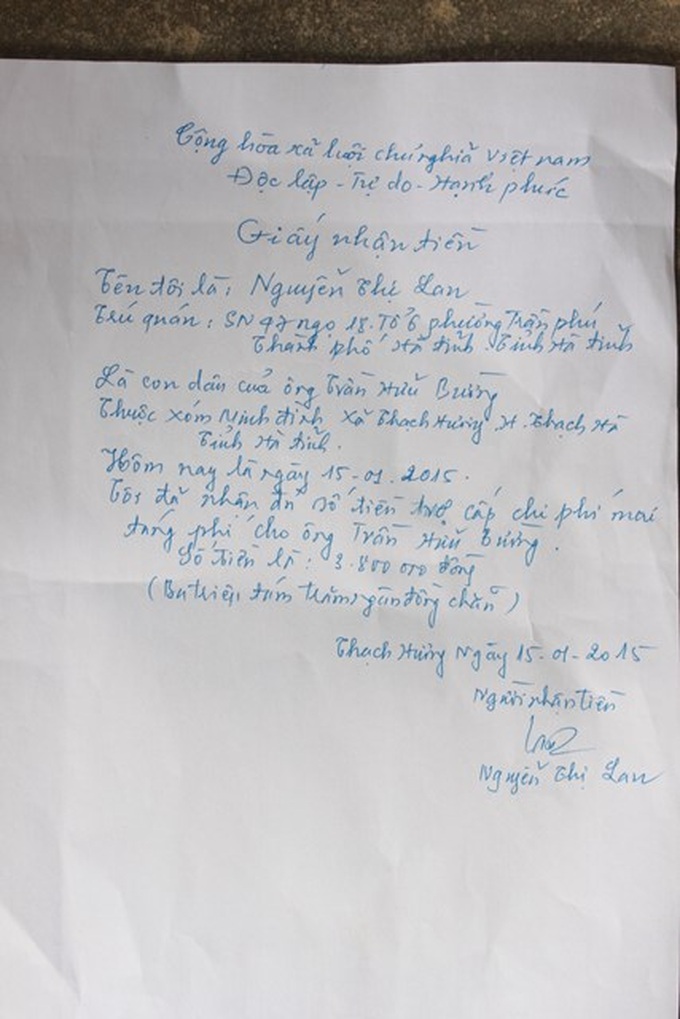 Cộng hòa xã hội chủ nghĩa Việt nam
Độc lập - Tự do - Hạnh phúc
Giấy nhận tiền
Tên tôi là: Nguyễn Thị Lan
Trú quán: SN 97 ngọ 18. Tổ 6 phường Trần phú
Thành phố Hà tĩnh. Tỉnh Hà tĩnh
Là con dâu của ông Trần Hữu Bường
Thuộc xóm Minh đình xã Thạch Hương. H. Thạch Hà
Tỉnh Hà tĩnh.
Hôm nay là ngày 15-01.2015.
Tôi đã nhận đủ số tiền trợ cấp chi phí mai
táng phí cho ông Trần Hữu Bường.
Số tiền là: 3.800 000 đồng
(Ba triệu, tám trăm, ngàn đồng chẵn)
Thạch Hương Ngày 15-01-2015
Người nhận tiền
Nguyễn Thị Lan